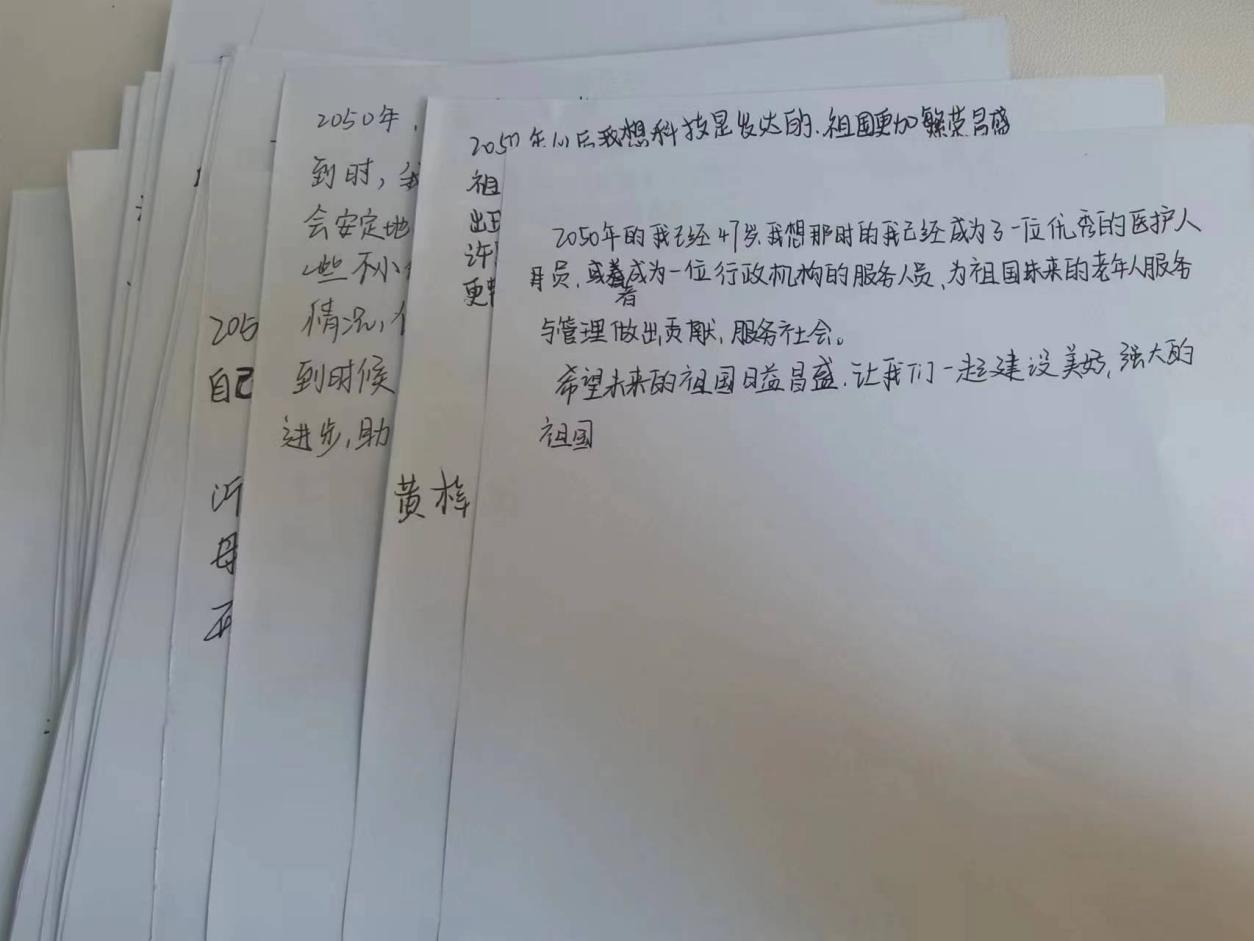 2050年的我已经47岁,我想那时的我已经成为了一位优秀的医护人
员,或者成为一位行政机构的服务人员,为祖国未来的老年人服务
与管理做出贡献,服务社会。
希望未来的祖国日益昌盛.让我们一起建设美好,强大的
祖国
2050年以后我想科技是发达的.祖国更加繁荣昌盛
祖
出
许
更
黄梓
2050年,
到时,我
会安定地
一些不小
情况,
到时候
进步,助
205
自己
沂
母